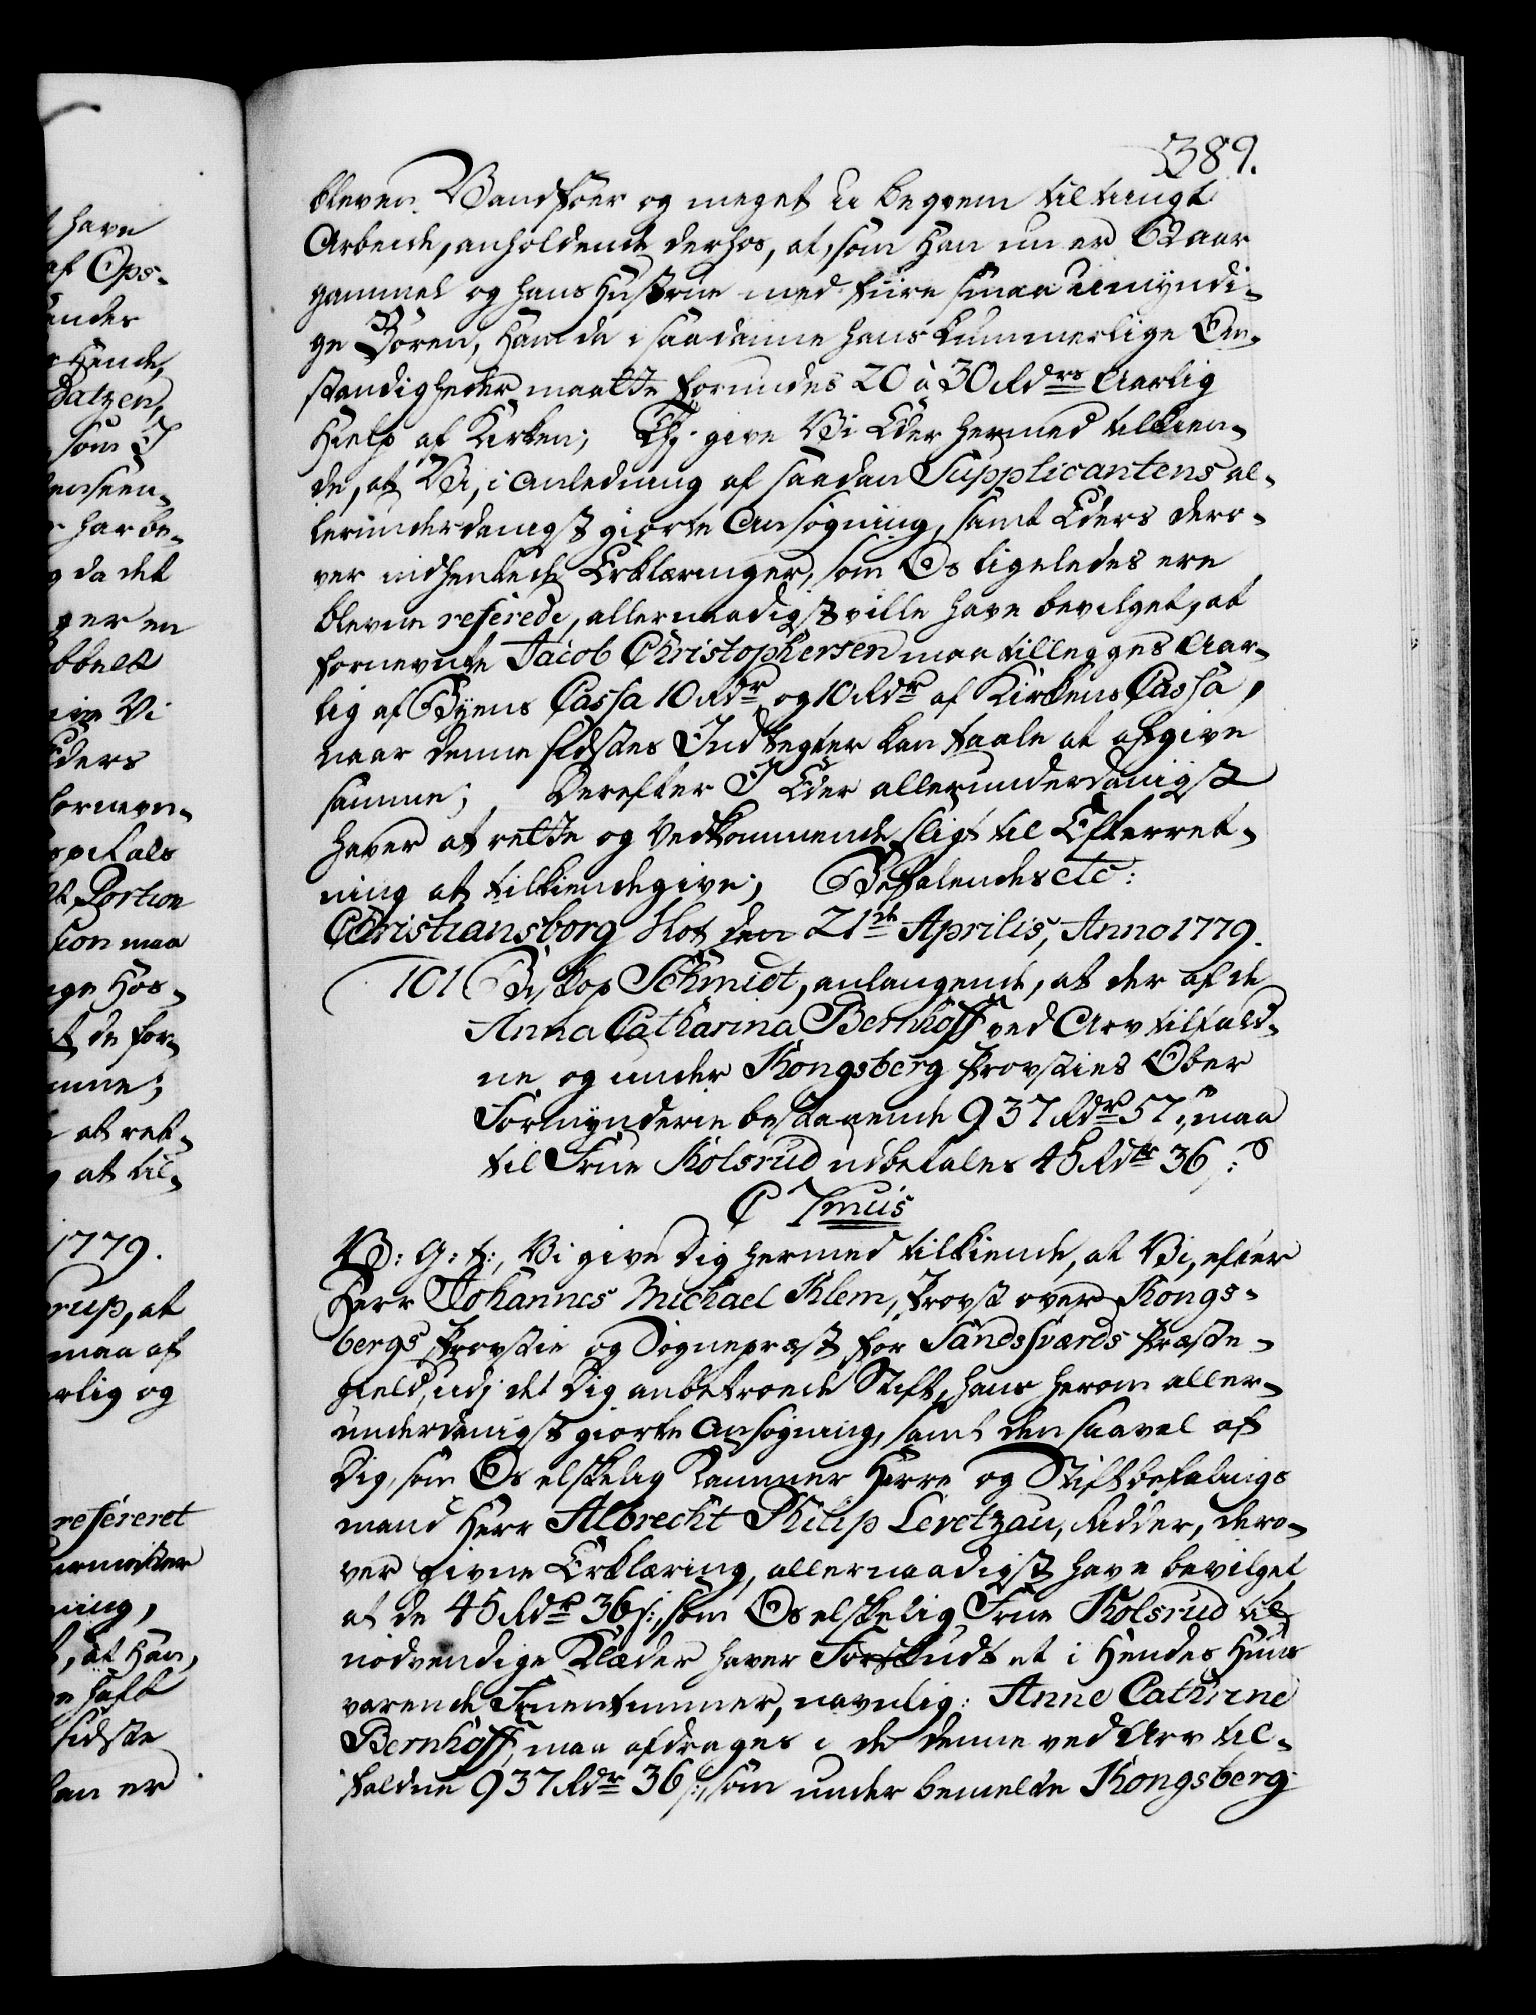 389.
bleven Vandføer og meget Ubeqvem til tungt
Arbeide, anholdende derhos, at, som Han nu er 62 aar
gammel og hans Hustrue med fiire smaa Umyndi-
ge Børen, Han da i saadanne hans kummerlige Om-
stændigheder maatte forundes 20 à 30 Rdrs Aarlig
Hielp af Kirken; Thj give Vi Eder hermed tilkien-
de, at Vi, i Anledning af saadan Supplicantens al-
lerunderdanigst giorte Ansøgning, samt Eders dero-
ver indhentede Erklæringer, som Os ligeledes ere
blevne refererede, allernaadigst ville have bevilget, at
fornevnte Jacob Christophersen maa tillegges Aar-
lig af Byens Cassa 10 Rdr og 10 Rdr af Kirkens Cassa,
naar denne sidstes Indtegter kan taale at afgive
samme; Derefter I Eder allerunderdanigst
haver at rette og Vedkommende sligt til Efterret-
ning at tilkiendegive; Befalendes etc:
Christiansborg Slot den 21de Aprilis, Anno 1779.
101 Biskop Schmidt, anlangende, at der af de
Anna Catharina Bernhoff ved Arv tilfald-
ne og under Kongsberg Provsties Ober
Formynderie bestaaende 937 Rdr 57 s, maa
til Frue Kolsrud udbetales 45 Rdr 36 s:
C 7mus
V: G: t:, Vi give Dig hermed tilkiende, at Vi, efter
Herr Johannes Michael Klem, Provst over Kongs-
bergs Provstie og Sognepræst for Sandsværds Præste-
gield, udj det Dig anbetroede Stift, hans herom aller-
underdanigst giorte Ansøgning, samt den saavel af
Dig, som Os elskelig Kammer Herre og Stiftbefalings
mand Herr Albrecht Philip Levetzau, Ridder, dero-
ver givne Erklæring, allernaadigst have bevilget,
at de 45 Rdr 36 s:, som Os elskelig Frue Kolsrud til
nødvendige Klæder haver Forskudt et i Hendes Huus
værende Fruentimmer, navnlig: Anne Cathrine
Bernhoff, maa afdrages i de denne ved Arv til-
faldne 937 Rdr 36 s:, som under bemelte Kongsberg